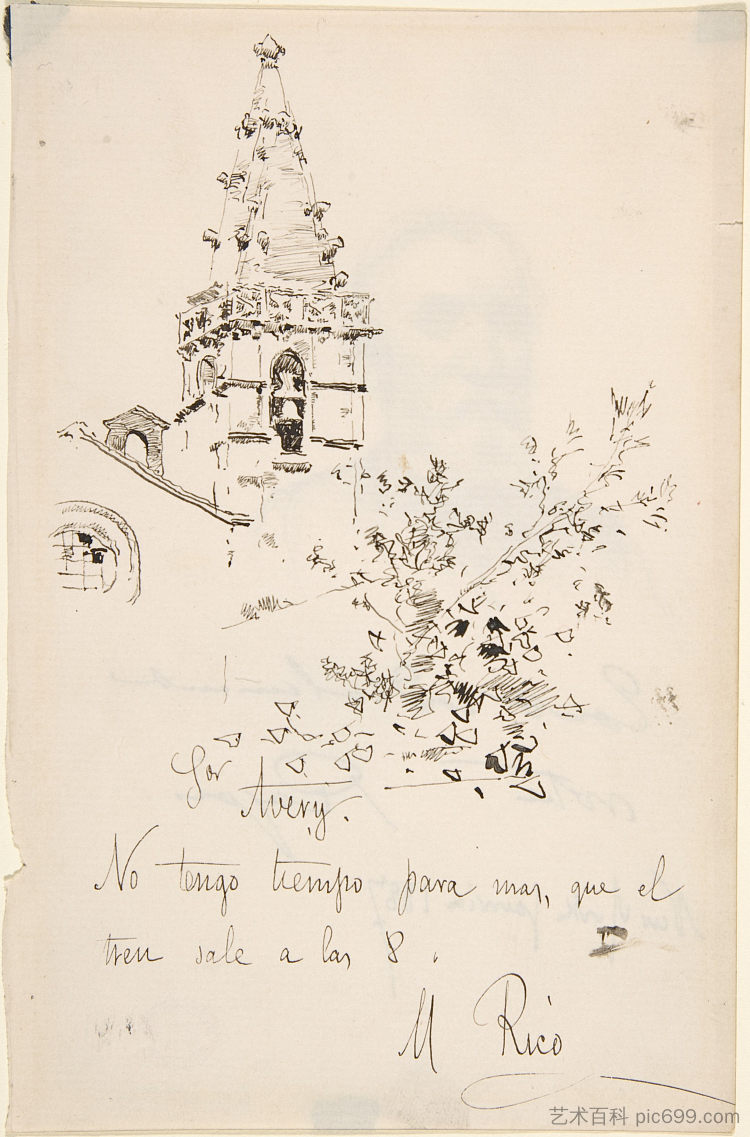 Sor
Avery.
No tengo tiempo para mas, que el
tren sale a las 8.
M Rico
艺术百科 pic699.com